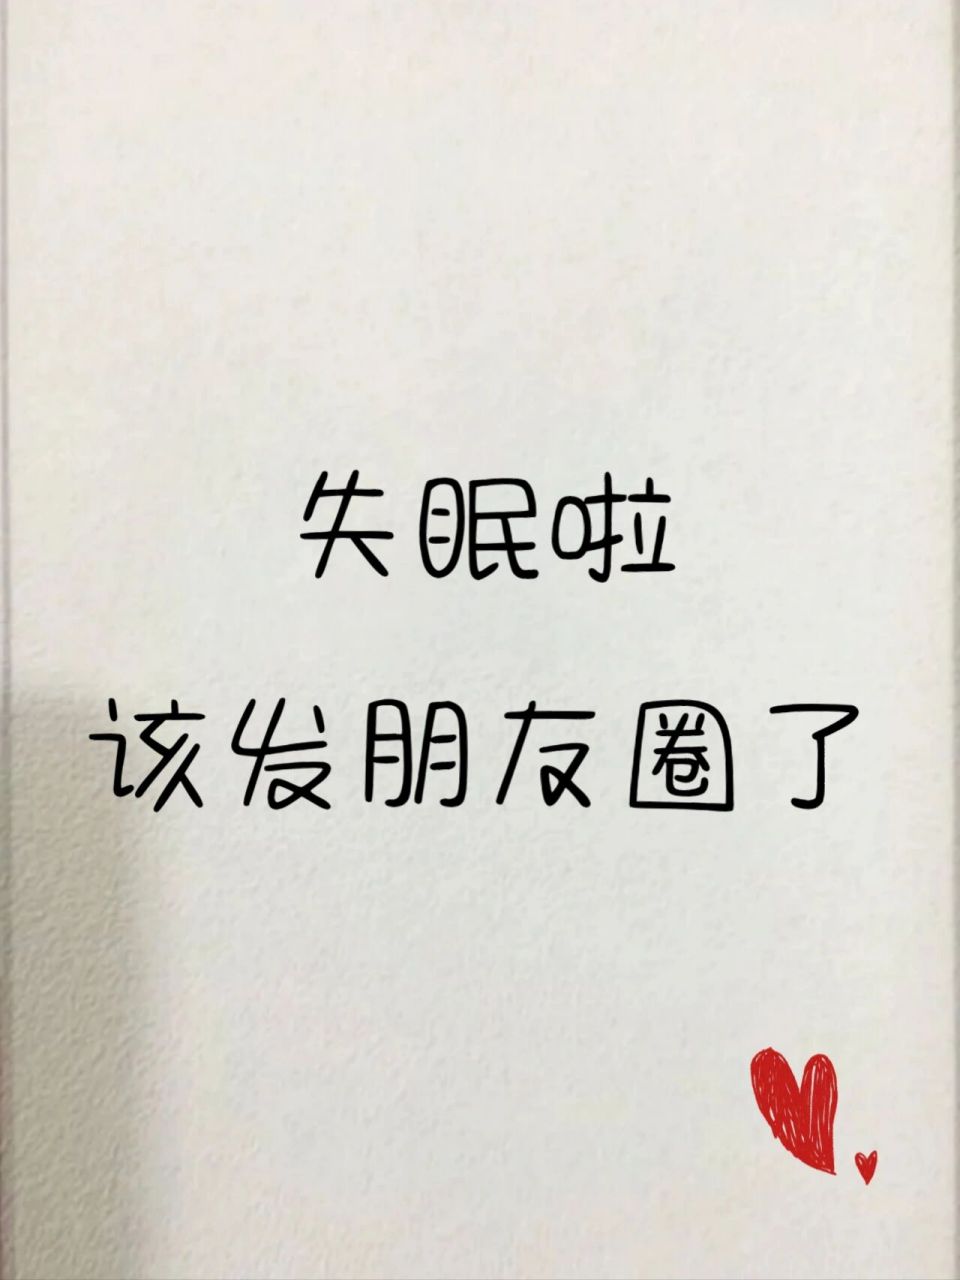 失眠啦
该发朋友圈了